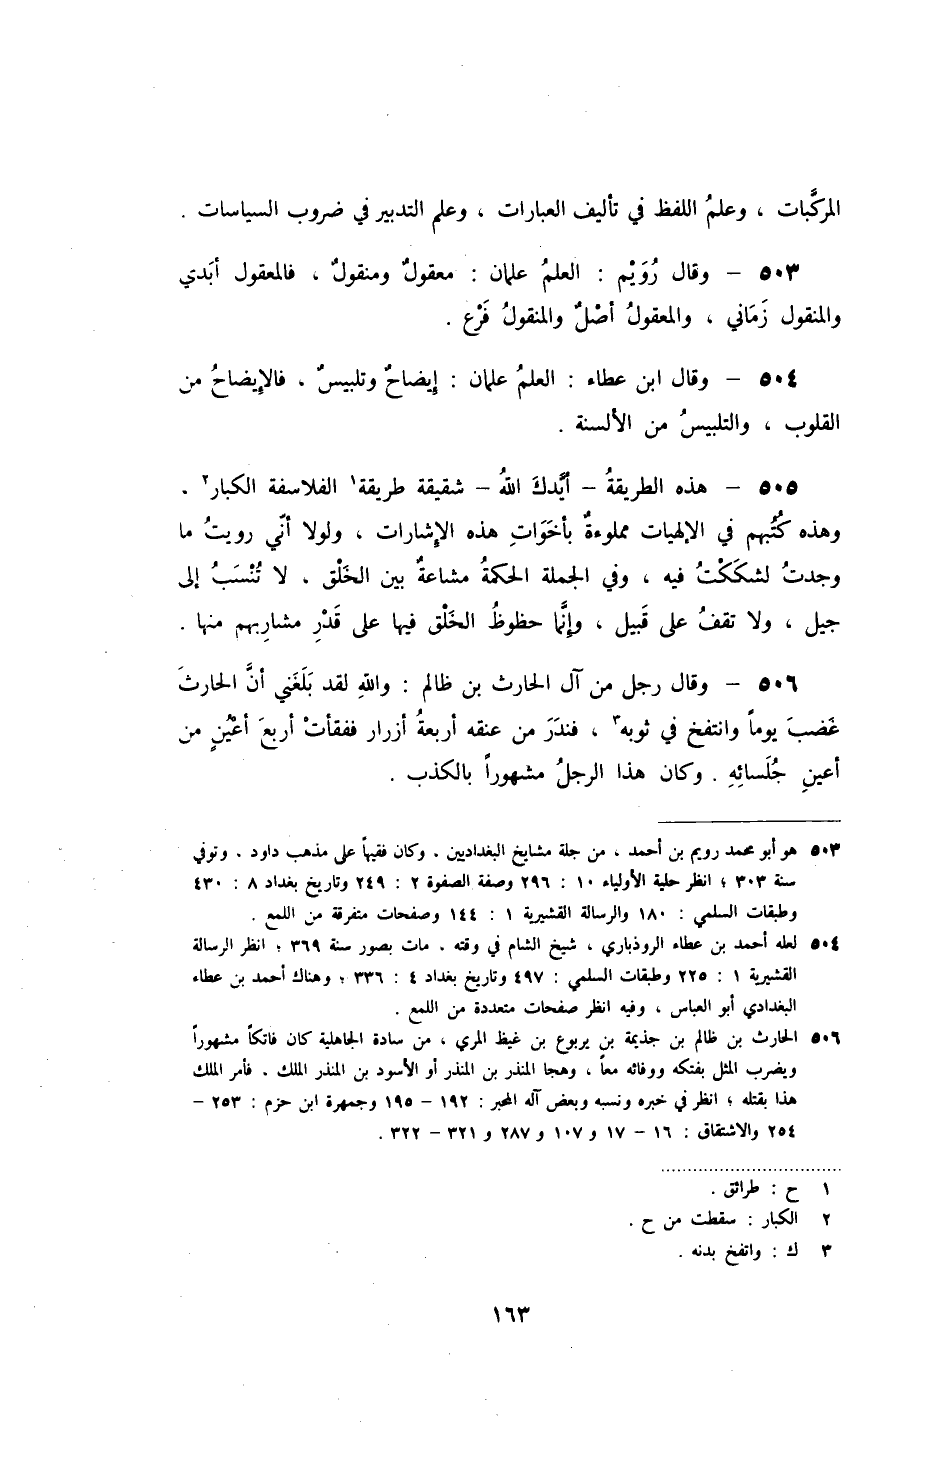 المركَّبات ، وعلمُ اللفظ في تأليف العبارات ، وعلم التدبير في ضروب السياسات .
٥٠٣ – وقال رُوَيْم : العلمُ علمان : معقولٌ ومنقولٌ ، فالمعقول أبَدي
والمنقول زَمَاني ، والمعقولُ أصْلٌ والمنقولُ فَرْع .
٥٠٤ – وقال ابن عطاء : العلمُ علمان : إيضاحٌ وتلبيسٌ . فالإيضاحُ من
القلوب ، والتلبيسُ من الألسنة .
٥٠٥ – هذه الطريقةُ – أيَّدكَ اللهُ – شقيقة طريقة١ الفلاسفة الكبار٢ .
وهذه كُتُبهم في الإلهيات مملوءةٌ بأخَوَاتِ هذه الإشارات ، ولولا أنّي رويتُ ما
وجدتُ لشككْتُ فيه ، وفي الجملة الحكمةُ مشاعةٌ بين الخَلْق . لا تُنْسَبُ إلى
جيل ، ولا تقفُ على قَبيل ، وإنَّما حظوظُ الخَلْق فيها على قَدْرِ مشاربِهم منها .
٥٠٦ – وقال رجل من آل الحارث بن ظالم : واللهِ لقد بَلَغَني أنَّ الحارثَ
غَضبَ يوماً وانتفخ في ثوبه٣ ، فندَرَ من عنقه أربعةُ أزرار ففقأتْ أربعَ أعْيُنٍ من
أعينِ جُلَسائِهِ . وكان هذا الرجلُ مشهوراً بالكذب .
٥٠٣ هو أبو محمد رويم بن أحمد ، من جلة مشايخ البغداديين . وكان فقيهاً على مذهب داود . وتوفي
سنة ٣٠٣ ؛ انظر حلية الأولياء ١٠ : ٢٩٦ وصفة الصفوة ٢ : ٢٤٩ وتاريخ بغداد ٨ : ٤٣٠
وطبقات السلمي : ١٨٠ والرسالة القشيرية ١ : ١٤٤ وصفحات متفرقة من اللمع .
٥٠٤ لعله أحمد بن عطاء الروذباري ، شيخ الشام في وقته . مات بصور سنة ٣٦٩ ؛ انظر الرسالة
القشيرية ١ : ٢٢٥ وطبقات السلمي : ٤٩٧ وتاريخ بغداد ٤ : ٣٣٦ ؛ وهناك أحمد بن عطاء
البغدادي أبو العباس ، وفيه انظر صفحات متعددة من اللمع .
٥٠٦ الحارث بن ظالم بن جذيمة بن يربوع بن غيظ المري ، من سادة الجاهلية كان فاتكاً مشهوراً
ويضرب المثل بفتكه ووفائه معاً ، وهجا المنذر بن المنذر أو الأسود بن المنذر الملك . فأمر الملك
هذا بقتله ؛ انظر في خبره ونسبه وبعض آله المحبر : ١٩٢ – ١٩٥ وجمهرة ابن حزم : ٢٥٣ –
٢٥٤ والاشتقاق : ١٦ – ١٧ و ١٠٧ و ٢٨٧ و ٣٢١ – ٣٢٢ .
١ ح : طرائق .
٢ الكبار : سقطت من ح .
٣ ك : واتفخ بدنه .
١٦٣